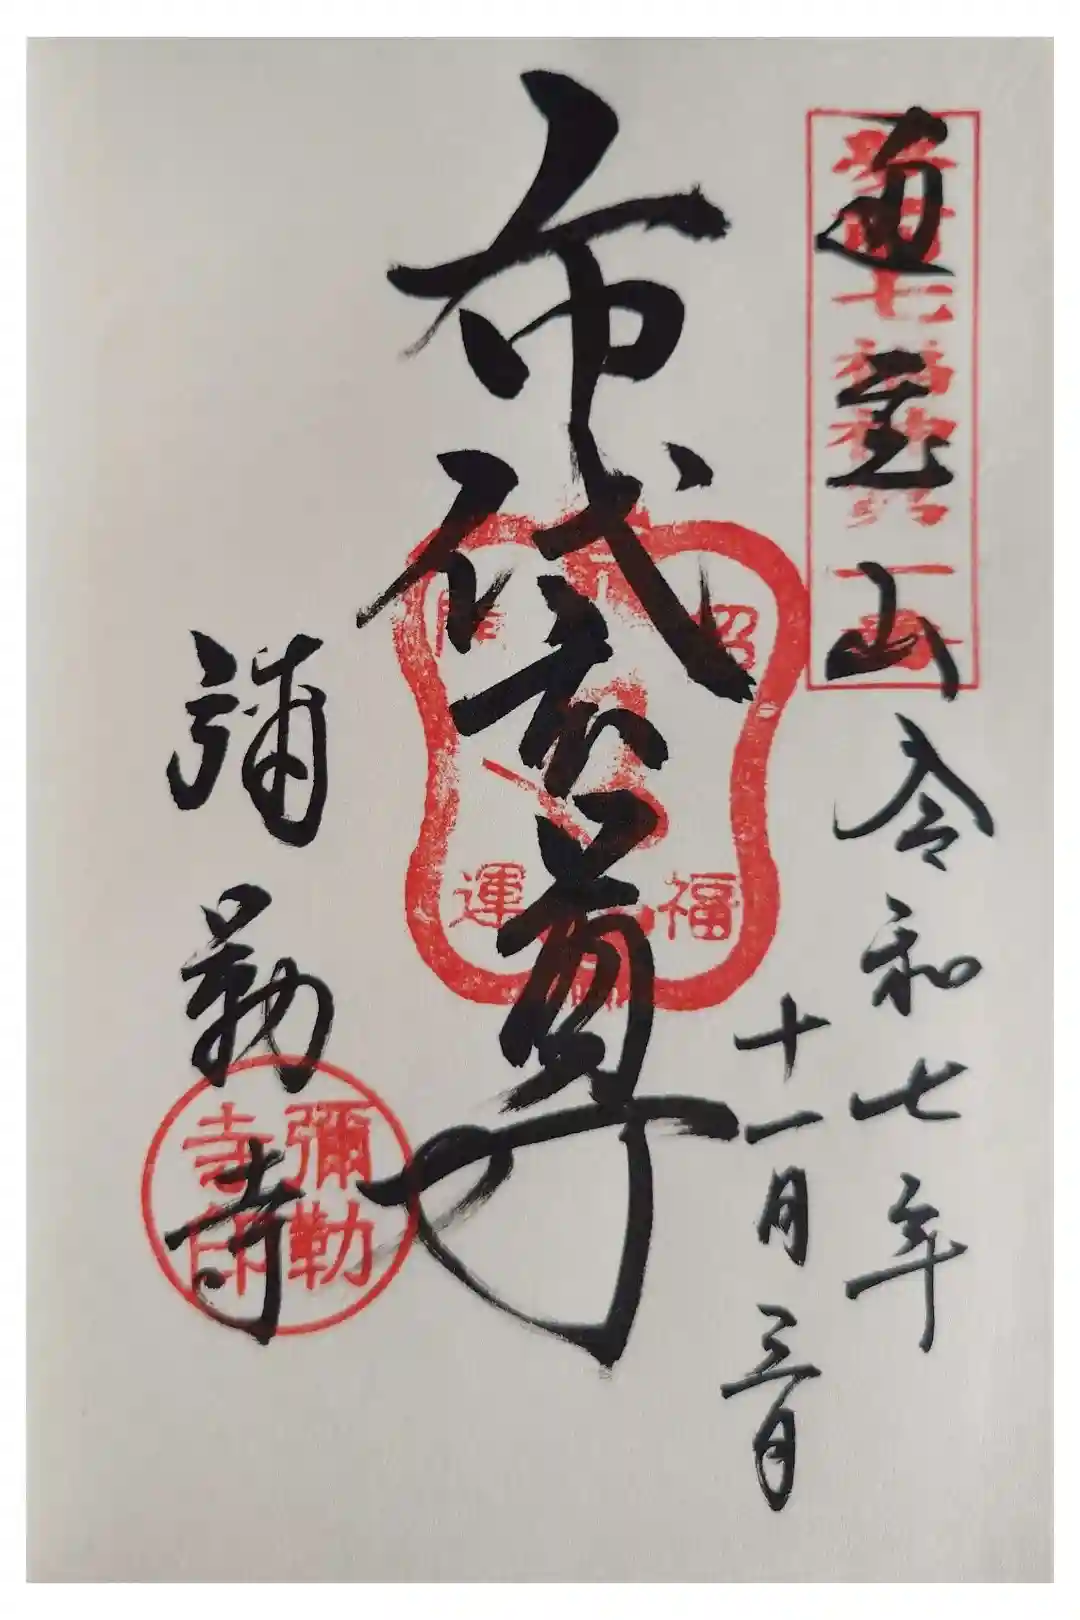 通玄山
七福神
令和七年
十一月三日
布袋尊
招福
運
彌勒寺
彌勒寺印